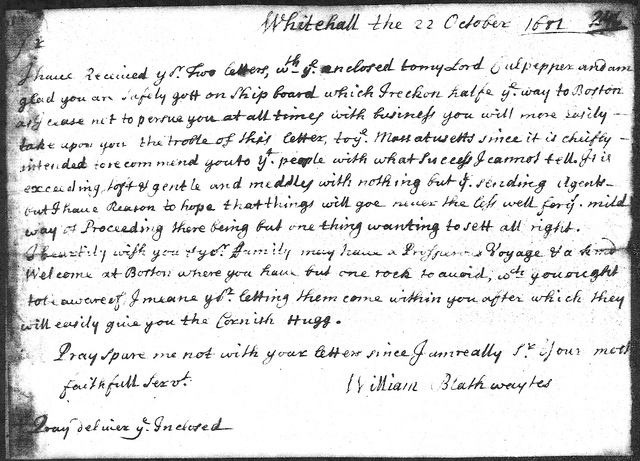 Whitehall the 22 October 1681
Sr
I haue Received yor. Two letters, wth. ye. enclosed to my Lord Culpepper and am
glad you are safely gott on Ship board which I reckon halfe ye. way to Boston
as I cease not to persue you at all times with business you will more easily
take upon you the troble of this letter, to ye. Massatusetts since it is chiefly
intended to recommend you to yt. people with what Success I cannot tell. It is
exceeding soft & gentle and meddles with nothing but ye. sending Agents
but I haue Reason to hope that things will goe never the less well for ye. mild
way of Proceeding there being but one thing wanting to sett all right.
I heartily wish you & yor. family may haue a Prosperous Voyage & a kind
Welcome at Boston where you haue but one rock to auoid, wch. you ought
to be aware of, I meane yor. letting them come within you after which they
will easily giue you the Cornish Hugg.
Pray spare me not with your letters since I am really Sr. Your most
faithfull Servt.
William Blathwaytes
Pray deliuer ye. Inclosed